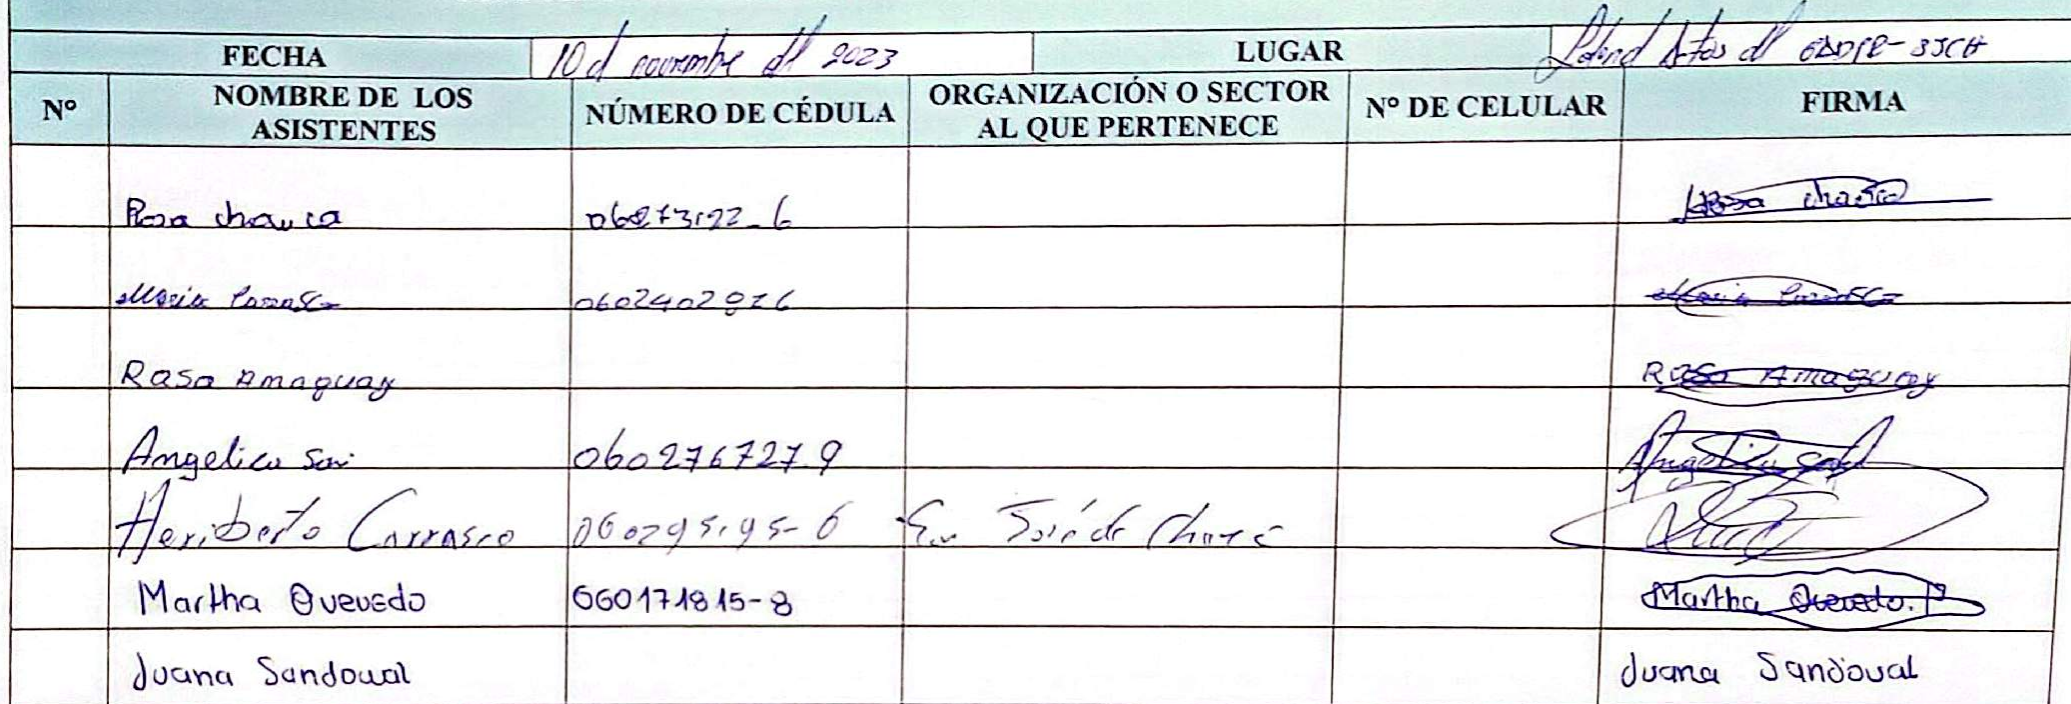 FECHA 10 d noviembre del 2023 LUGAR
Nº NOMBRE DE LOS ASISTENTES NÚMERO DE CÉDULA ORGANIZACIÓN O SECTOR AL QUE PERTENECE Nº DE CELULAR FIRMA
Rosa chauca
Maria Carrasco 0602402926
Rosa Amaguay Rosa Amaguay
Angelica 060276727-9 Angelica
Heriberto Carrasco 060295195-6 San José de
Martha Quevedo 060171815-8 Martha Quevedo.
Juana Sandoval Juana Sandoval